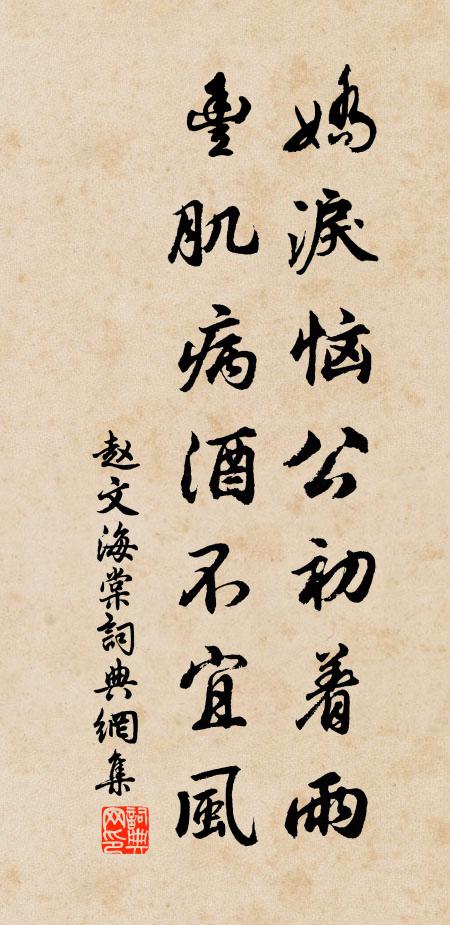 嬌淚恼公初着雨
豊肌病酒不宜風
赵文海棠詞典網集
詞典網印